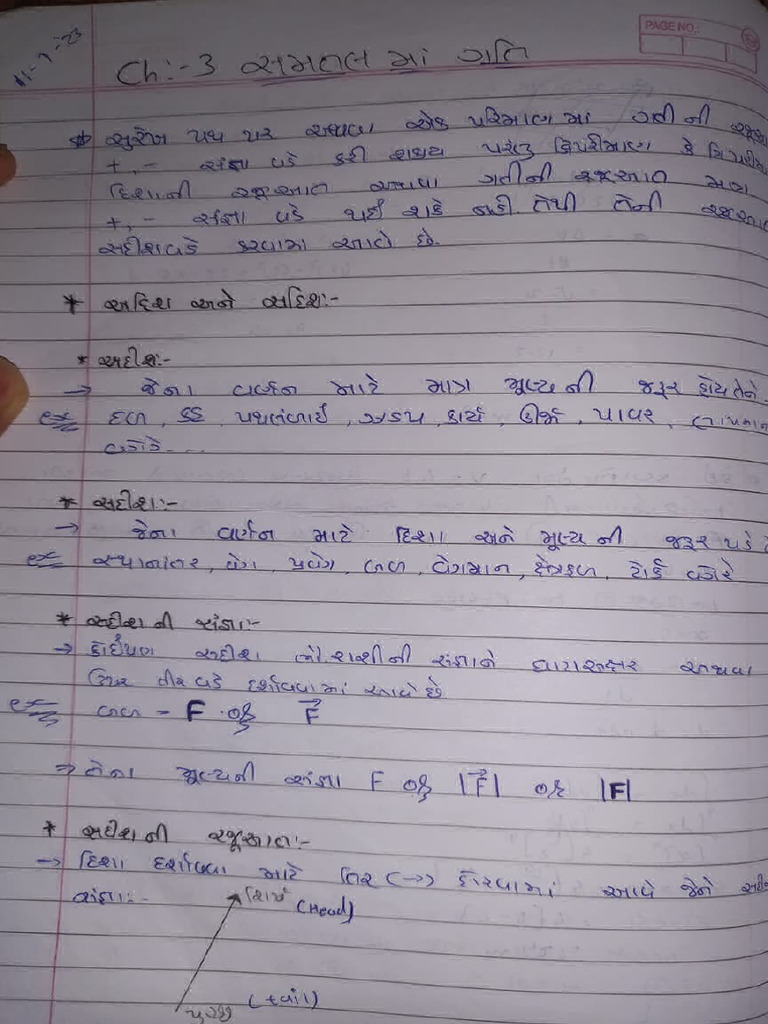 11-7-23
PAGE NO.:
Ch:-3 સમતલ માં ગતિ
* સુરેખ પથ પર અથવા એક પરિમાણ માં ગતી ની
+, - સંજ્ઞા વડે કરી શકાય પરંતુ દ્વિપરીમાણ કે
દિશાની રજુઆત અથવા ગતીની રજુઆત માત્ર
+, - સંજ્ઞા વડે થઈ શકે નહી. તેથી તેની
સદીશ વડે કરવામાં આવે છે.
* અદિશ અને સદિશ:-
* અદીશ:-
→ જેના વર્ણન માટે માત્ર મૂલ્ય ની જરૂર હોય તેને
ex દળ, કદ, પથલંબાઈ, ઝડપ, કાર્ય, ઊર્જા, પાવર, તાપમાન
વગેરે...
* સદીશ:-
→ જેના વર્ણન માટે દિશા અને મૂલ્ય ની જરૂર પડે
ex સ્થાનાંતર, વેગ, પ્રવેગ, બળ, વેગમાન, ક્ષેત્રફળ, ટોર્ક વગેરે
* સદીશ ની સંજ્ઞા:-
→ કોઈપણ સદીશ ભૌ રાશીની સંજ્ઞાને ઘાટાઅક્ષર અથવા
તીર વડે દર્શાવવામાં આવે છે
ex બળ - F or F⃗
⇒ તેના મૂલ્યની સંજ્ઞા F or |F⃗| or |F|
* સદીશ ની રજૂઆત:-
→ દિશા દર્શાવવા માટે તિર (→) દોરવામાં આવે જેને
સંજ્ઞા:- શિર્ષ (Head)
પુચ્છ (tail)